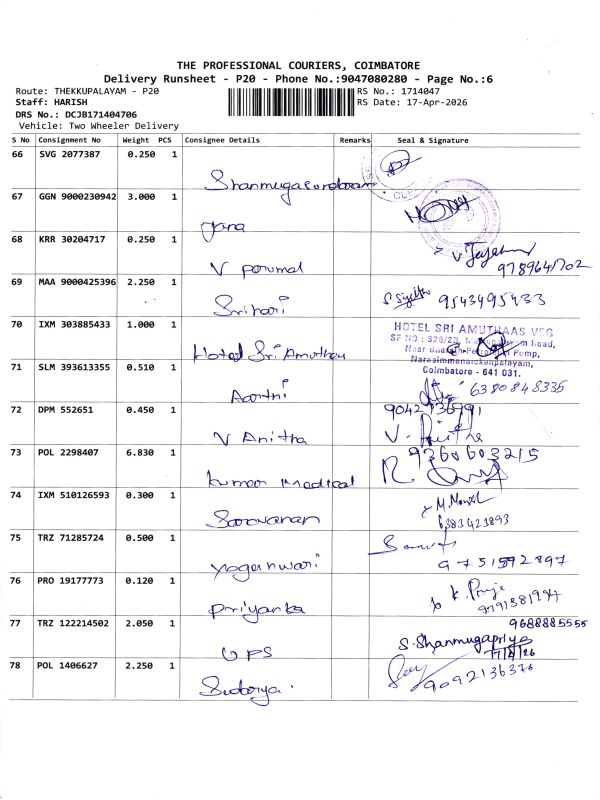 THE PROFESSIONAL COURIERS, COIMBATORE
Delivery Runsheet - P20 - Phone No.:9047080280 - Page No.:6
Route: THEKKUPALAYAM - P20 RS No.: 1714047
Staff: HARISH RS Date: 17-Apr-2026
DRS No.: DCJB171404706
Vehicle: Two Wheeler Delivery
S No Consignment No Weight PCS Consignee Details Remarks Seal & Signature
66 SVG 2077387 0.250 1
Shanmugasundaram
67 GGN 9000230942 3.000 1
Jana
68 KRR 30204717 0.250 1
V perumal 9789641702
69 MAA 9000425396 2.250 1
Srihari 9543495433
70 IXM 303885433 1.000 1
HOTEL SRI AMUTHAAS VEG
Hotel Sri Amuthas
Narasimmanaickenpalayam,
Coimbatore - 641 031.
71 SLM 393613355 0.510 1
Aarthi 6380848335
72 DPM 552651 0.450 1
V Anitha V.
73 POL 2298407 6.830 1 9360603215
Kumar Medical R.
74 IXM 510126593 0.300 1
Saravanan 6383423893
75 TRZ 71285724 0.500 1
Yogeshwari 9751592897
76 PRO 19177773 0.120 1
Priyanka
77 TRZ 122214502 2.050 1 9688885555
UPS S. Shanmugapriya
17/4/26
78 POL 1406627 2.250 1
9092136376